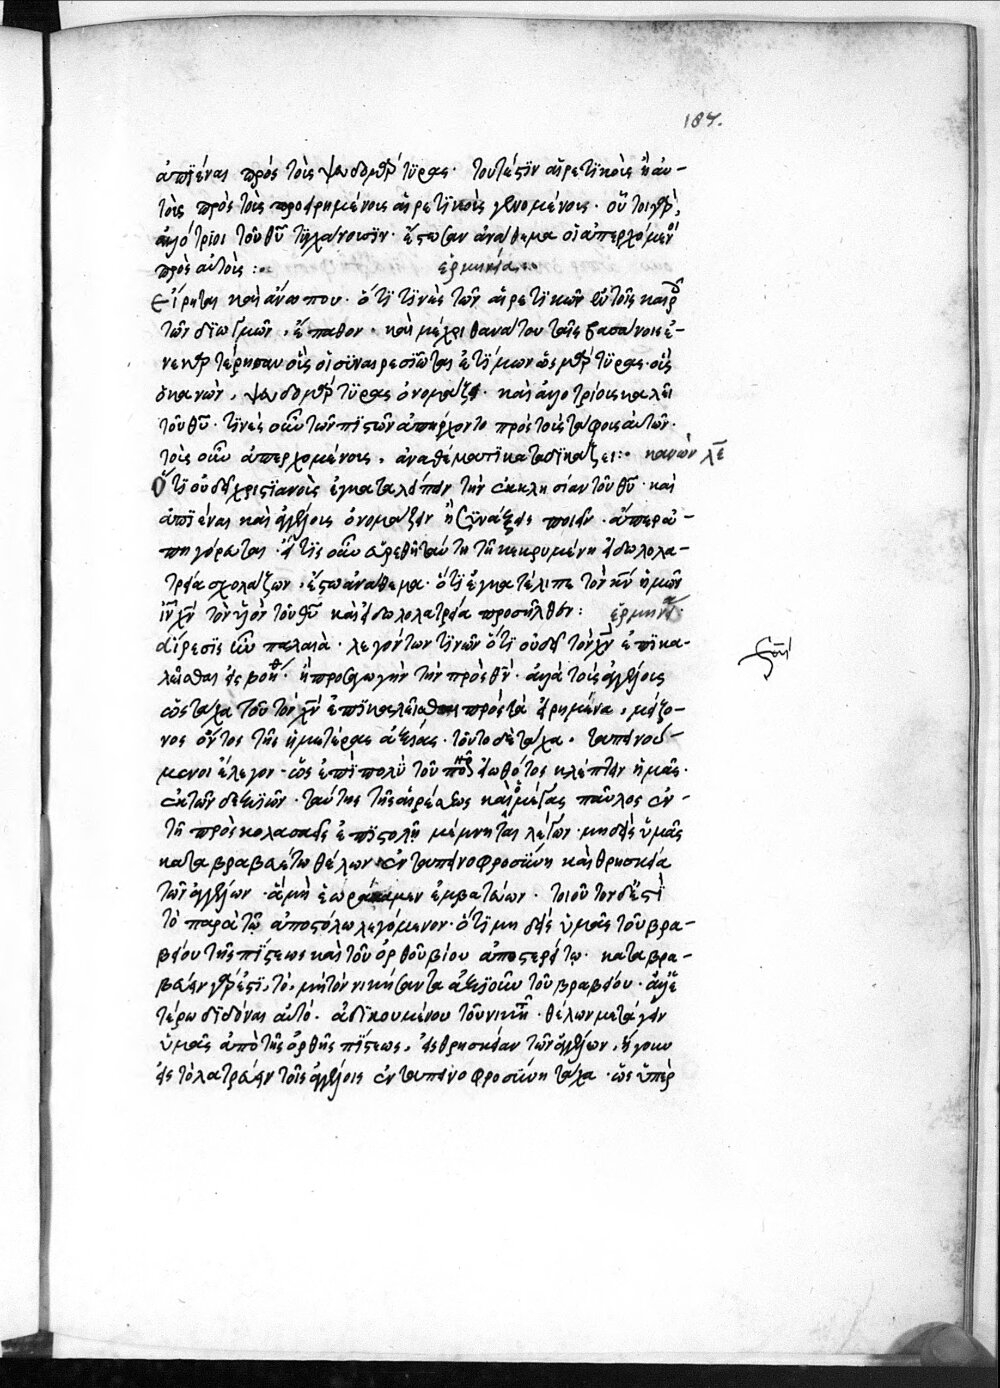 187.
ἀπϊέναι πρὸς τοὺς ψευδομάρτϋρας· τουτέστϊν αἱρετϊκοὺς ἢ αὐ-
τοὺς πρὸς τοὺς προειρημένοις αἱρετϊκοὺς γενομένους· οὗτοι γὰρ,
ἀλλότριοι τοῦ θῦ τυγχάνουσϊν· ἔστωσαν ἀνάθεμα οἱ ἀπερχόμενοι
πρὸς αὐτοὺς :· ἑρμηνεία
Εἴρηται καὶ ἄνω που· ὅτϊ τϊνὲς τῶν αἱρετϊκῶν ἐν τοῖς καιροῖς
τῶν δϊωγμῶν, ἔπαθον· καὶ μέχρι θανάτου ταῖς βασάνοις ἐ-
νεκαρτέρησαν οὓς οἱ σϋναιρεσϊῶται ἐτίμων ὡς μάρτϋρας· οὓς
ὁ κανὼν, ψευδομάρτϋρας ὀνομάζει· καὶ ἀλλοτρίους καλεῖ
τοῦ θῦ· τϊνὲς οὖν τῶν πϊστῶν ἀπήρχοντο πρὸς τοὺς τάφους αὐτῶν·
τοὺς οὖν ἀπερχομένους, ἀναθέματϊ καταδϊκάζει :· κανὼν λε
Ὅτϊ οὐ δεῖ χριστϊανοὺς ἐγκαταλείπειν τὴν ἐκκλησίαν τοῦ θῦ· καὶ
ἀπϊέναι καὶ ἀγγέλους ὀνομάζειν ἢ σϋνάξεις ποιεῖν· ἅπερ ἀ-
πηγόρευται· εἴ τϊς οὖν εὑρεθῆ ταύτη τῆ κεκρυμένη εἰδωλολα-
τρεία σχολάζων, ἔστω ἀνάθεμα· ὅτϊ ἐγκατέλιπε τὸν κν ἡμῶν
ιν χν τὸν υἱὸν τοῦ θῦ καὶ εἰδωλολατρεία προσῆλθεν: ἑρμηνεία:
αἵρεσις ἦν παλαιὰ· λεγόντων τϊνῶν ὅτϊ οὐ δεῖ τὸν χν ἐπϊκα-
λεῖσθαι εἰς βοήθειαν· ἢ προσαγωγὴν τὴν πρὸς θν· ἀλλὰ τοὺς ἀγγέλους
ὡς τάχα τοῦ τὸν χν ἐπϊκαλεῖσθαι πρὸς τὰ εἰρημένα, μείζο-
νος ὄντος τῆς ἡμετέρας ἀξίας· τοῦτο δὲ τάχα, ταπεινού-
μενοι ἔλεγον· ὡς ἐπϊπολὺ τοῦ πονηροῦ εἰωθότος κλέπτειν ἡμᾶς·
ἐκ τῶν δεξιῶν· ταύτης τῆς αἱρέσεως καὶ ὁ μέγας παῦλος ἐν
τῆ πρὸς κολασσαεῖς ἐπϊστολῆ μέμνηται λέγων· μηδεὶς ὑμᾶς
καταβραβευέτω θέλων ἐν ταπεινοφροσύνη καὶ θρησκεία
τῶν ἀγγέλων· ἃ μὴ ἑώρακεν ἐμβατεύων· τοιοῦτον δέ ἐστϊ
τὸ παρὰ τῶ ἀποστόλω λεγόμενον· ὅτϊ μηδεὶς ὑμᾶς τοῦ βρα-
βείου τῆς πίστεως καὶ τοῦ ὀρθοῦ βίου ἀποστερείτω· καταβρα-
βεύειν γάρ ἐστϊ, τὸ, μὴ τὸν νικήσαντα ἀξιοῦν τοῦ βραβείου· ἀλλ' ἑ-
τέρω δϊδόναι αὐτό· ἀδϊκουμένου τοῦ νικήσαντος· θέλων μετάγειν
ὑμᾶς ἀπὸ τῆς ὀρθῆς πίστεως, εἰς θρησκείαν τῶν ἀγγέλων, ἤγουν
εἰς τὸ λατρεύειν τοῖς ἀγγέλοις ἐν ταπεινοφροσύνη τάχα· ὡς ὑπὲρ